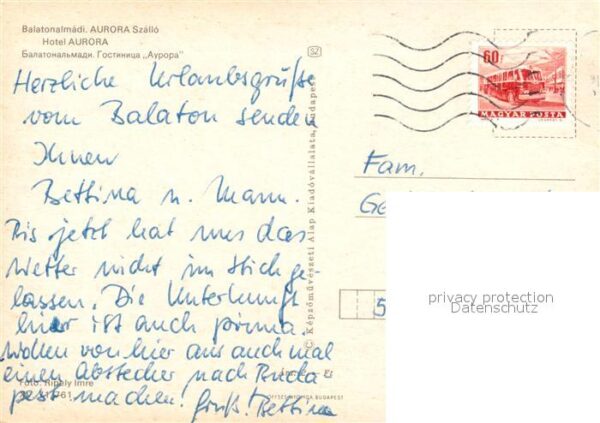 Balatonalmádi. AURORA Szálló
Hotel AURORA
Балатональмади. Гостиница „Аурора"
Herzliche Urlaubsgrüße
vom Balaton senden
Ihnen
Bettina u. Mann.
Bis jetzt hat uns das
Wetter nicht im Stich ge
lassen. Die Unterkunft
hier ist auch prima.
Wollen von hier aus auch mal
einen Abstecher nach Buda
pest machen! Gruß! Bettina
Foto: Ripály Imre
SZ
© Képzőművészeti Alap Kiadóvállalata, Budapest
BUDAPEST
60f
MAGYAR POSTA
Fam.
Ge
5
privacy protection
Datenschutz